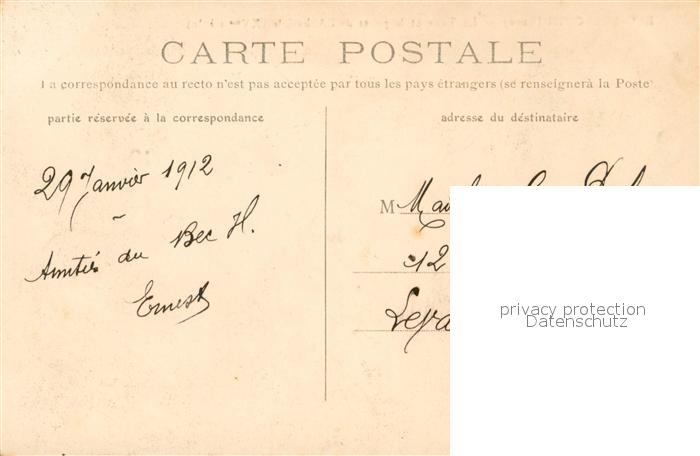 CARTE POSTALE
La correspondance au recto n'est pas acceptée par tous les pays étrangers (se renseigner à la Poste
partie réservée à la correspondance
adresse du déstinataire
29 Janvier 1912
Amitiés du Bec H.
Ernest
M
12
privacy protection
Datenschutz